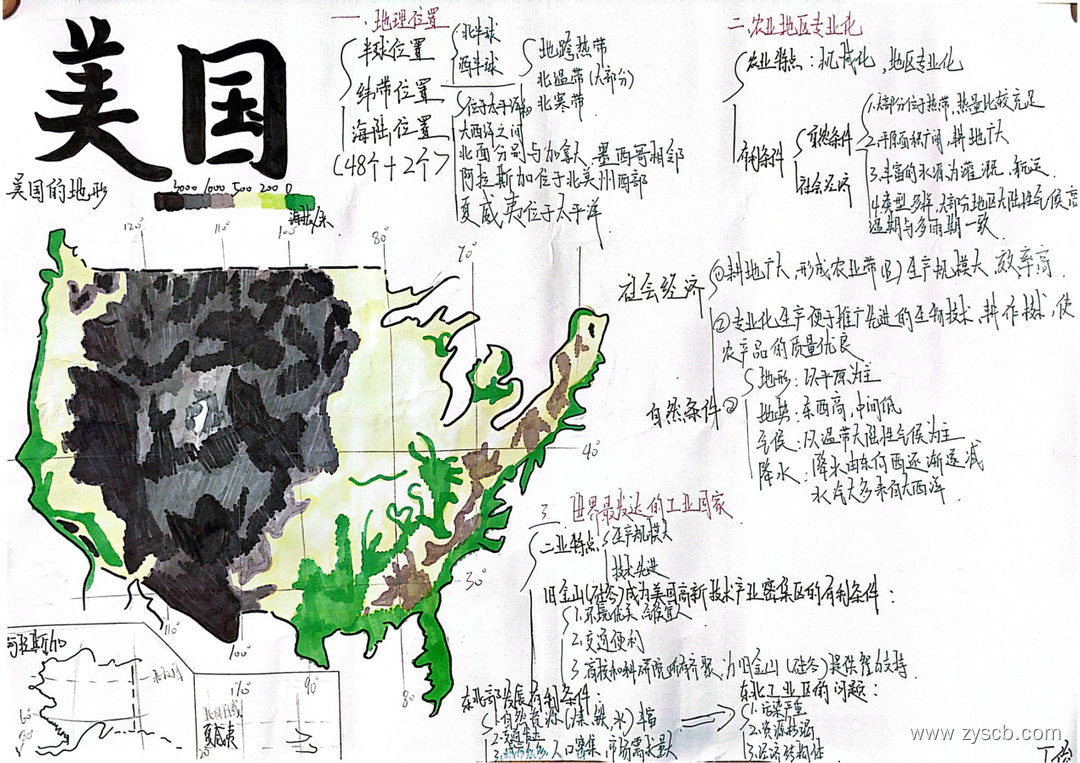 美国
美国的地形
3000 1000 500 200 0
海拔/米
120° 110° 100° 80° 70°
40°
30°
110° 100° 80°
阿拉斯加
60°
170° 90°
夏威夷
一、地理位置
半球位置
北半球
西半球
纬带位置
地跨热带
北温带(大部分)
北寒带
海陆位置
(48个+2个)
位于太平洋和
大西洋之间
北面分别与加拿大、墨西哥相邻
阿拉斯加位于北美州西部
夏威夷位于太平洋
二、农业地区专业化
农业特点:机械化,地区专业化
有利条件
自然条件
社会经济
1.大部分位于热带,热量比较充足
2.平原面积广阔,耕地广大
3.丰富的水源为灌溉、航运
4.类型多样,大部分地区大陆性气候高
温期与多雨期一致
社会经济
①耕地广大,形成农业带(区)生产规模大 效率高
②专业化生产便于推广先进的生物技术、耕作技术,使
农产品的质量优良
自然条件②
地形:以平原为主
地势:东西高,中间低
气候:以温带大陆性气候为主
降水:降水由东向西逐渐递减
水汽大多来自大西洋
三 世界最发达的工业国家
工业特点
生产规模大
技术先进
旧金山(硅谷)成为美国高新技术产业密集区的有利条件:
1.环境优美,气候宜人
2.交通便利
3.高校和科研院所齐聚,为旧金山(硅谷)提供智力支持
东北部发展有利条件:
1.自然资源(煤、铁、水)丰富
2.交通发达
人口密集,市场需求量大
东北工业区的问题:
1.污染严重
2.资源枯竭
3.经济结构
www.zyscb.com